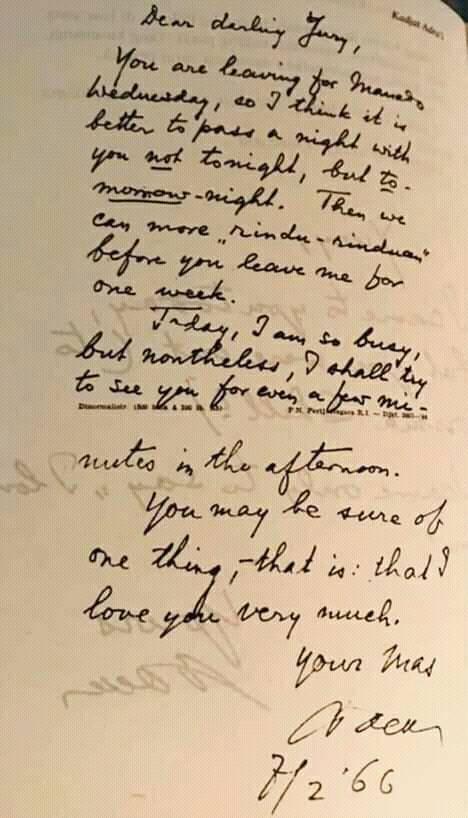 Kudjut Adra'i
Dear darling Yurry,
You are leaving for Manado
Wednesday, so I think it is
better to pass a night with
you not tonight, but to-
morrow-night. Then we
can more „rindu-rinduan"
before you leave me for
one week.
Today, I am so busy,
but nontheless, I shall try
to see you for even a few mi-
P. N. R.I.
nutes in the afternoon.
You may be sure of
one thing,-that is: that I
love you very much.
Your Mas
7/2 '66